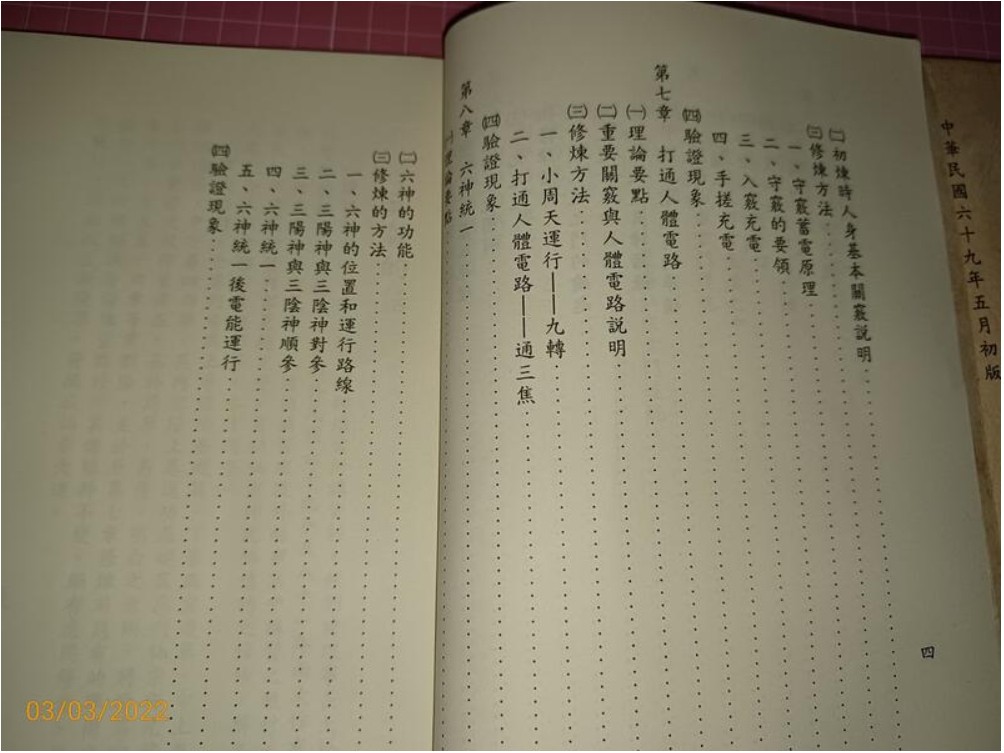 中華民國六十九年五月初版
㈡初煉時人身基本關竅説明
㈢修煉方法
一、守竅蓄電原理
二、守竅的要領
三、入竅充電
四、手搓充電
㈣驗證現象
第七章 打通人體電路
㈠理論要點
㈡重要關竅與人體電路説明
㈢修煉方法
一、小周天運行——九轉
二、打通人體電路——通三焦
㈣驗證現象
第八章 六神統一
㈠理論要點
四
㈡六神的功能
㈢修煉的方法
一、六神的位置和運行路線
二、三陽神與三陰神對參
三、三陽神與三陰神順參
四、六神統一
五、六神統一後電能運行
㈣驗證現象
03/03/2022